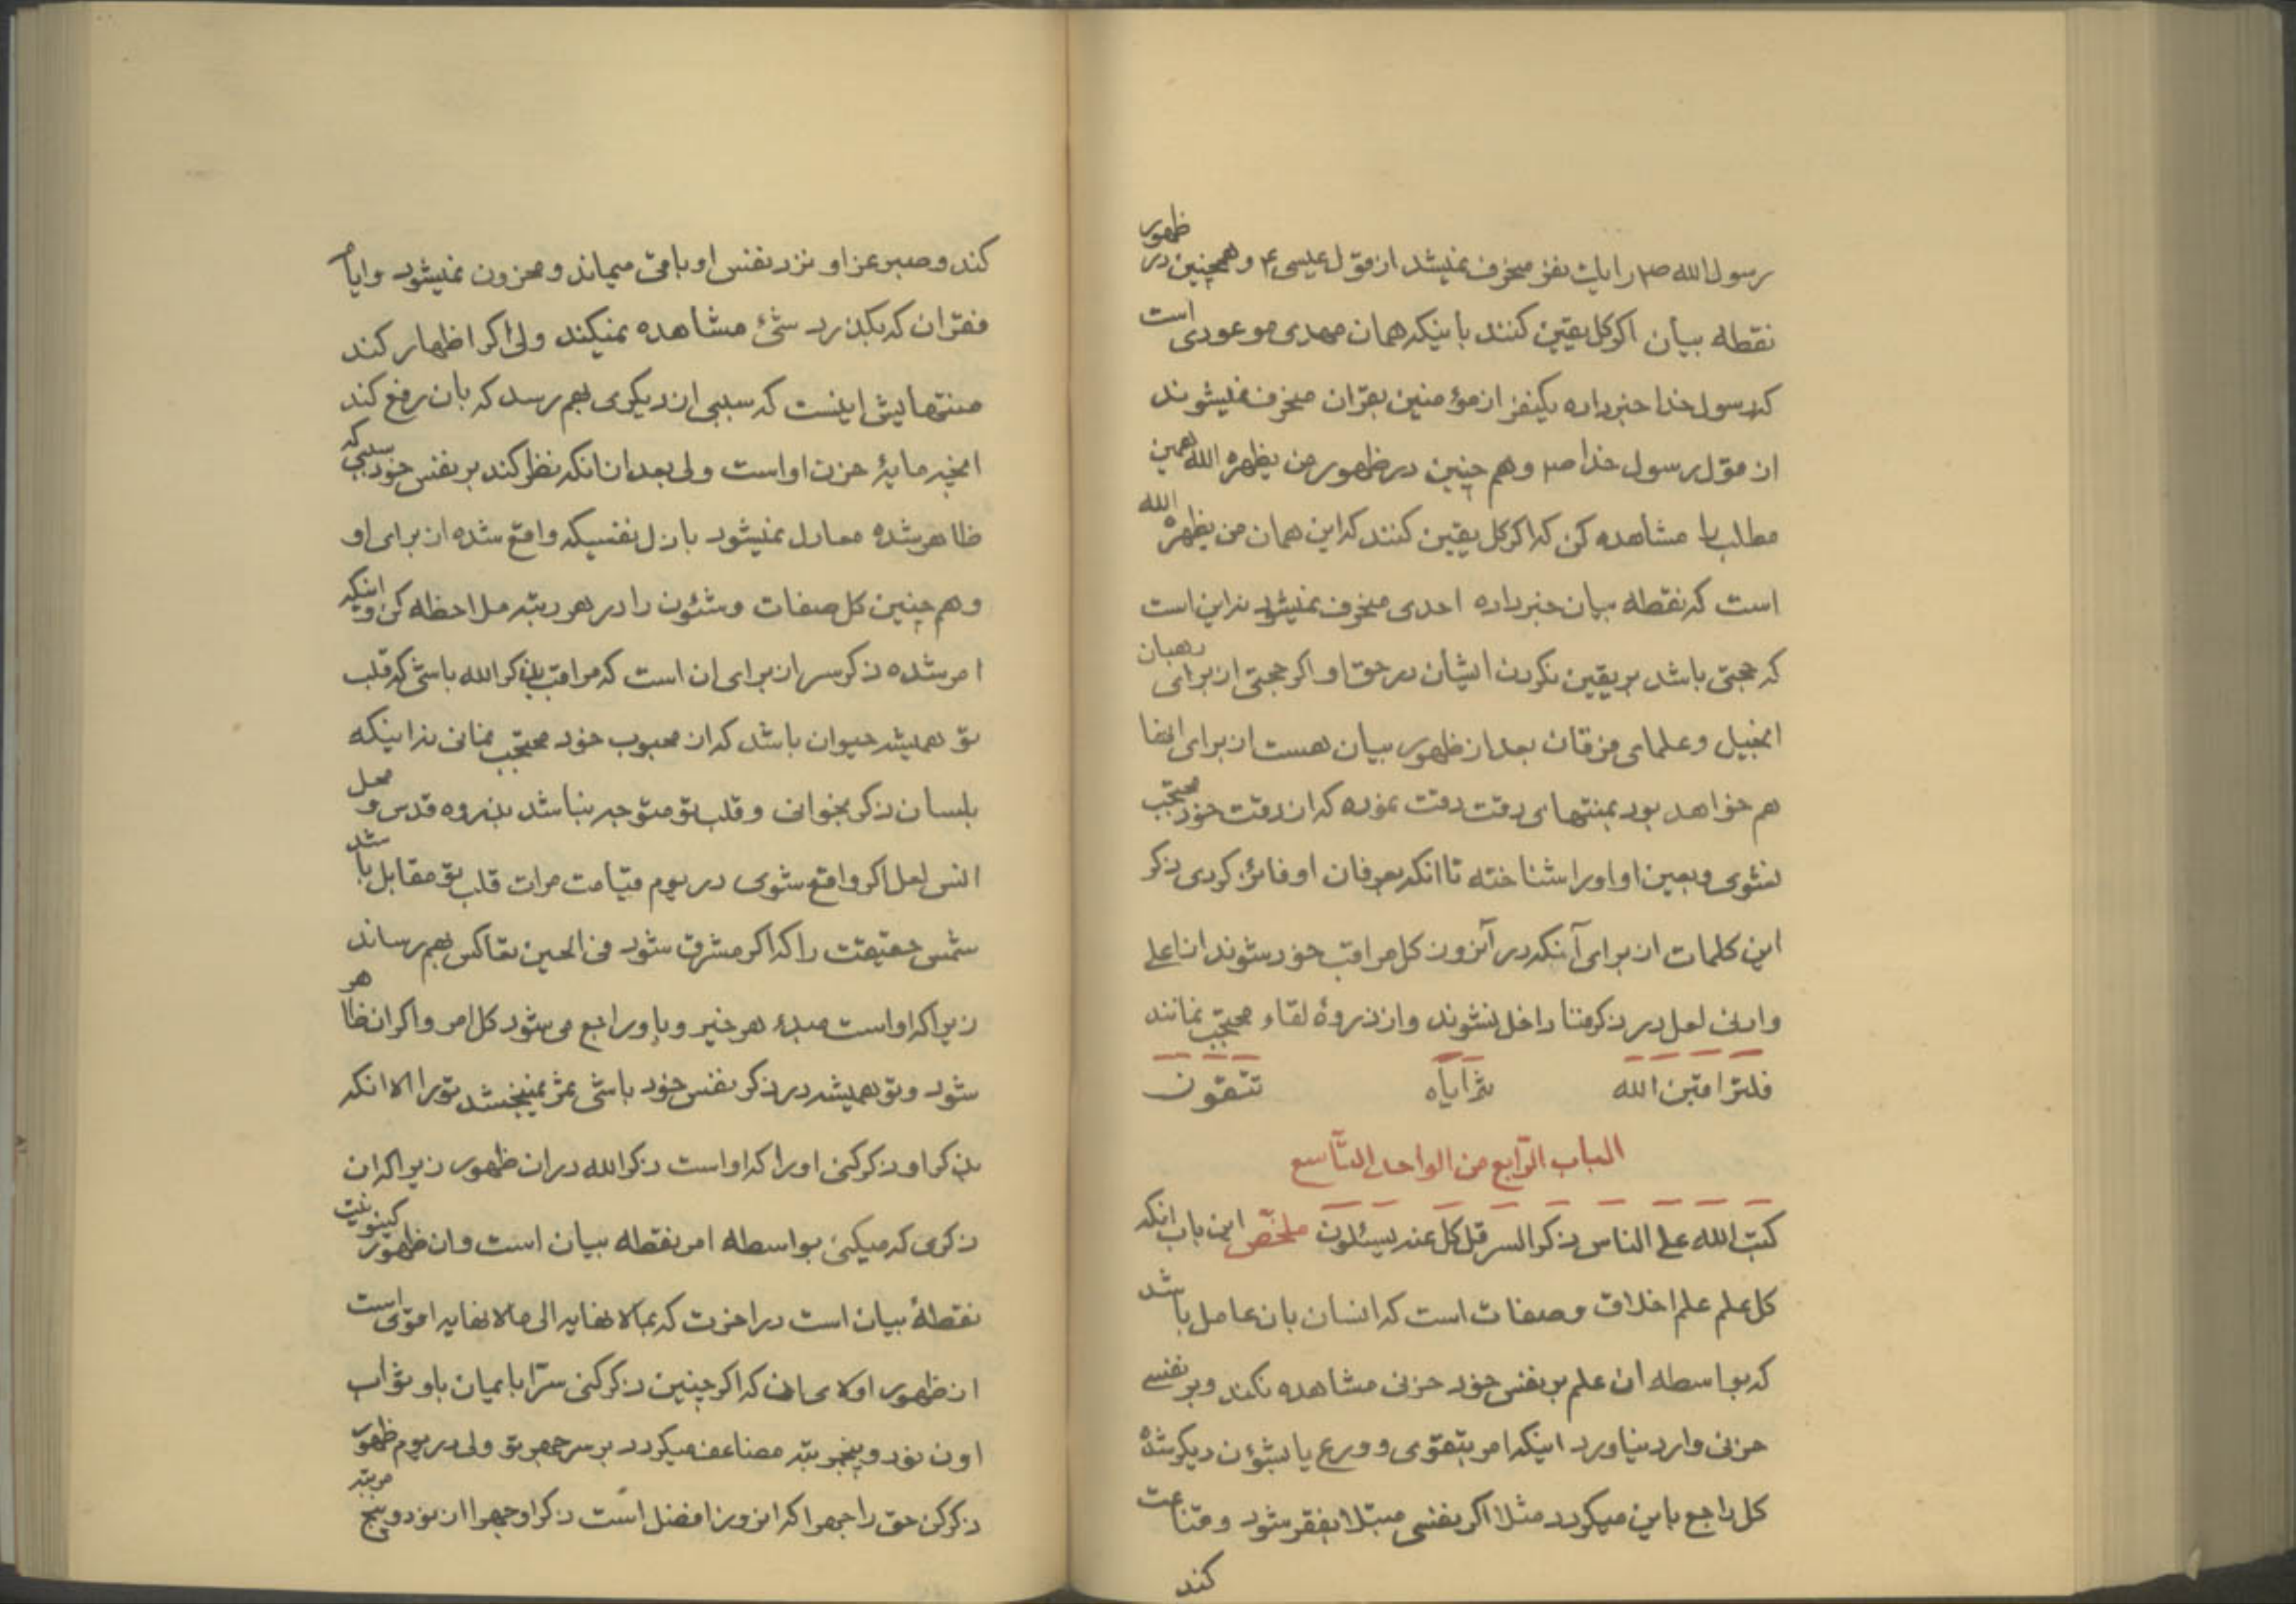 رسول الله ص را یک نفر منحرف نمیشد از قول عیسی ع و همچنین در ظهور
نقطه بیان اکر کل یقین کنند باینکه همان مهدی موعودی است
که رسول خدا خبر داده یکنفر از مؤمنین بقران منحرف نمیشوند
از قول رسول خدا ص و هم چنین در ظهور من یظهره الله همین
مطلب را مشاهده کن که اکر کل یقین کنند که این همان من یظهره الله
است که نقطه بیان خبر داده احدی منحرف نمیشود نه این است
که حجتی باشد بر یقین نکردن ایشان در حق او اکر حجتی از برای رهبان
انجیل و علمای فرقان بعد از ظهور بیان هست از برای انها
هم خواهد بود بمنتهای دقت دقت نموده که از دقت خود محتجب
نشوی و بعین او او را شناخته تا انکه بعرفان او فائز کردی ذکر
این کلمات از برای آنکه در آنروز کل مراقب خود شوند از اعلی
و ادنی لعل در ذکر فنا داخل نشوند و از ذروهٔ لقاء محتجب نمانند
فلتراقبن الله ثم ایاه تتقون
الباب الرّابع من الواحد التّاسع
کتب الله علی الناس ذکر السر قل کل عنه یسئلون ملخّص این باب انکه
کل علم علم اخلاق و صفات است که انسان بان عامل باشد
که بواسطه ان علم بر نفس خود حزنی مشاهده نکند و بر نفسی
حزنی وارد نیاورد اینکه امر بتقوی و ورع یا بشؤن دیکر شده
کل راجع باین میکردد مثلا اکر نفسی مبتلا بفقر شود و قناعت
کند
کند و صبر عز او نزد نفس او باقی میماند و محزون نمیشود و ایام
فقر ان که بکذرد شئ مشاهده نمیکند ولی اکر اظهار کند
منتهایش اینست که سببی از دیکری بهم رسد که بان رفع کند
انچه مایهٔ حزن او است ولی بعد از انکه نظر کند بر نفس خود سببی که
ظاهر شده معادل نمیشود با ذل نفسیکه واقع شده از برای او
و هم چنین کل صفات و شئون را در هر رتبه ملاحظه کن و اینکه
امر شده ذکر سر از برای ان است که مراقب بذکر الله باشی که قلب
تو همیشه حیوان باشد که از محبوب خود محتجب نمانی نه اینکه
بلسان ذکر بخوانی و قلب تو متوجه نباشد بذروه قدس و محل
انس لعل اکر واقع شوی در یوم قیامت مرات قلب تو مقابل باشد
شمس حقیقت را که اکر مشرق شود فی الحین تعاکس بهم رساند
زیرا که او است مبدء هر خیر و باو راجع می شود کل امر و اکر ان ظاهر
شود و تو همیشه در ذکر نفس خود باشی ثمر نمیبخشد تو را الا انکه
بذکر او ذکر کنی او را که او است ذکر الله در ان ظهور زیرا که ان
ذکری که میکنی بواسطه امر نقطه بیان است و ان ظهور کینونیت
نقطهٔ بیان است در اخرت که بمالانهایه الی مالانهایه اقوی است
از ظهور اولای ان که اکر چنین ذکر کنی سرّا بایمان باو ثواب
او نود و پنج مرتبه مضاعف میکردد بر سر جهر تو ولی در یوم ظهور
ذکر کن حق را جهرا که انروز افضل است ذکر او جهرا از نود و پنج مرتبه